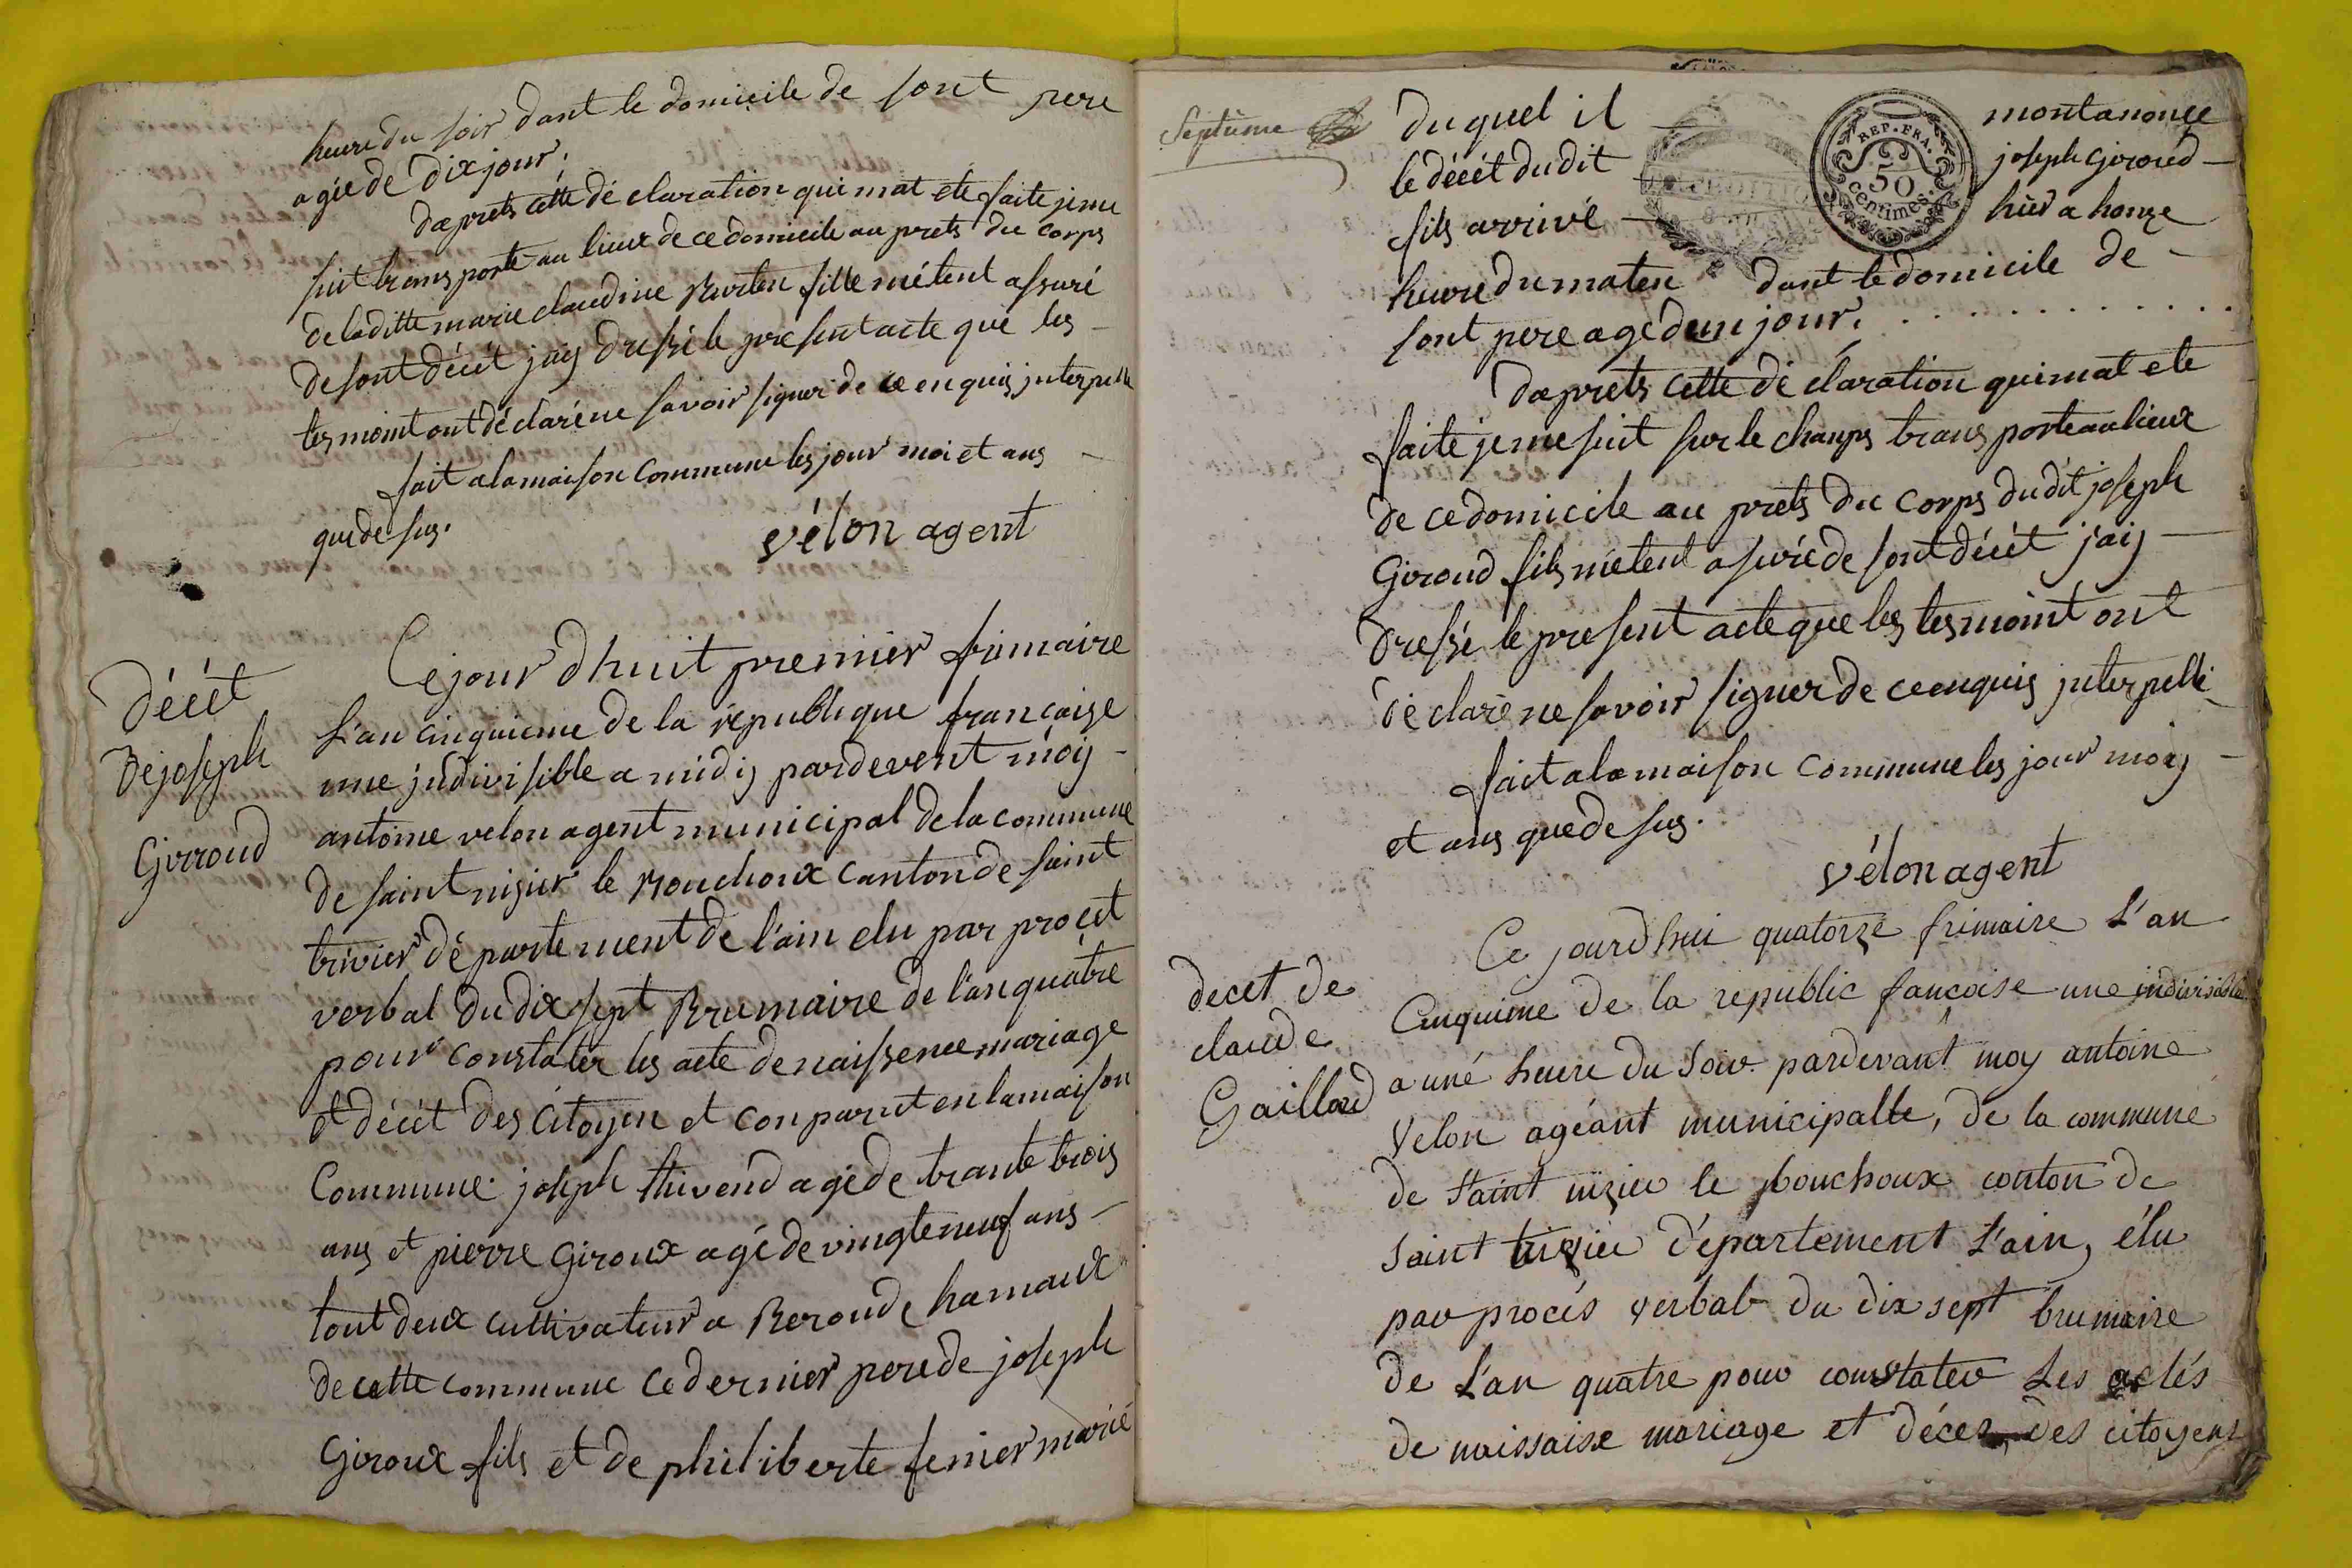 heure du soir dant le domicile de sont pere
agée de dix jour.
daprets cette déclaration qui mat ete faite jeme
suit transporté au lieux de ce domicile au prets du corps
de laditte marie claudine Burtin fille métent assuré
de sont décét jaij dressé le present acte que les
tesmoint ont déclaré ne savoir signer de ce enquis interpellé
fait alamaison commune les jour moi et ans
que de sus.
vélon agent
Décét
de joseph
Girroud
Cejour dhuit premier frimaire
L'an cinquieme de la republique francaise
une jndivisible a midij pardevent moij
antoine velon agent municipal de la commune
de saint nizier le Bouchoux canton de saint
trivier département de l'ain elu par procet
verbal du dix sept Brumaire de l'an quatre
pour constater les acte de naissence mariage
et décét des citoyen et conparut en lamaison
Commune joseph thivend agé de trante trois
ans et pierre Giroux agé de vingt e neuf ans
tout deux cultivateur a Beronde hamaux
de cette commune ce dernier pere de joseph
Giroux fils et de philiberte ferrier marié
Septième
du quel il montanoncé
le décét dudit joseph Giroud
fils arrivé hier a honze
REP. FRA.
50
centimes.
heure du maten dant le domicile de
sont pere agé dun jour.
daprets cette déclaration qui mat ete
faite jeme suit sur le champs transporté au lieux
de ce domicile au prets du corps dudit joseph
Giroud fils métent assuré de sont décét jaij
dressé le present acte que les tesmoint ont
déclaré ne savoir signer de ce enquis jnterpellé
fait alamaison commune les jour moij
et ans que de sus.
vélon agent
decet de
claude
Gaillard
Ce jourdhui quatorze frimaire L'an
Cinquieme de la republic francoise une indivisible
a une heure du Soir pardevant moy antoine
Velon agéant municipalle, de la commune
de Saint nizier le bouchoux conton de
Saint trivier département L'ain, élu
par procés verbal du dix sept brumaire
de L'an quatre pour constater Les actés
de naissaise mariage et décez des citoyens